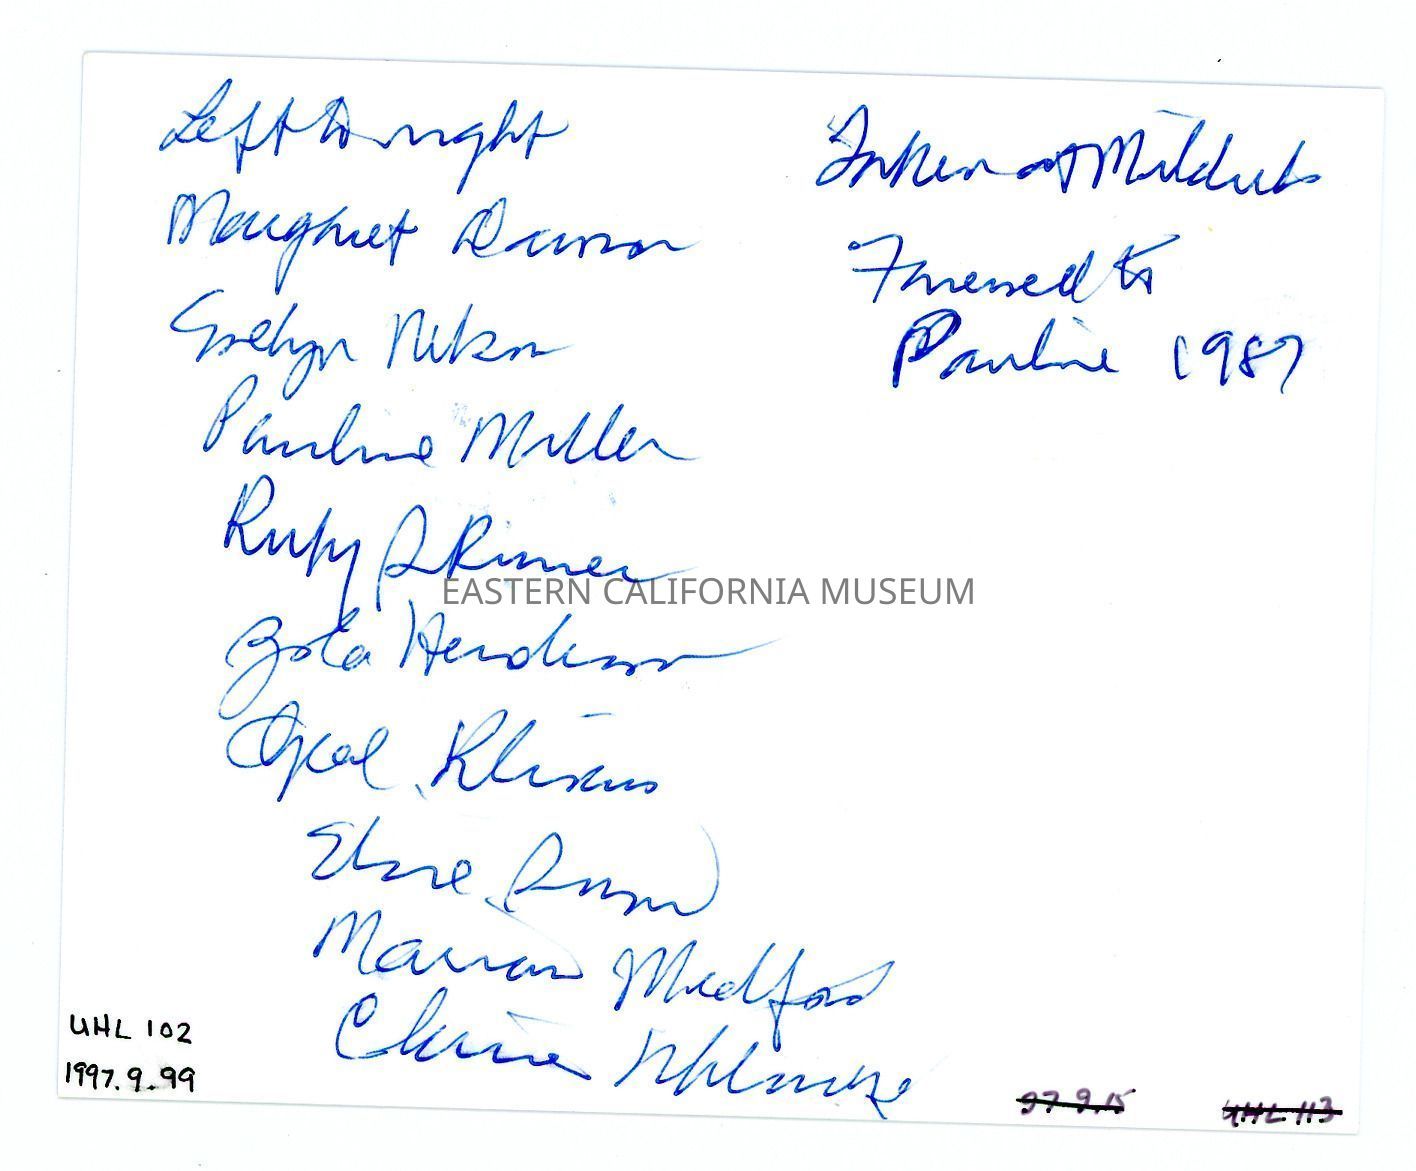 Left to right
Margret Dawson
Evelyn Nikon
Pauline Miller
Ruby Skinner
Zola Henderson
Opal Klixus
Elsie
Marian Medford
Claire
Taken at Mildreds
Farewell to
Pauline 1987
EASTERN CALIFORNIA MUSEUM
UHL 102
1997.9.99
97.9.15
UHL 113